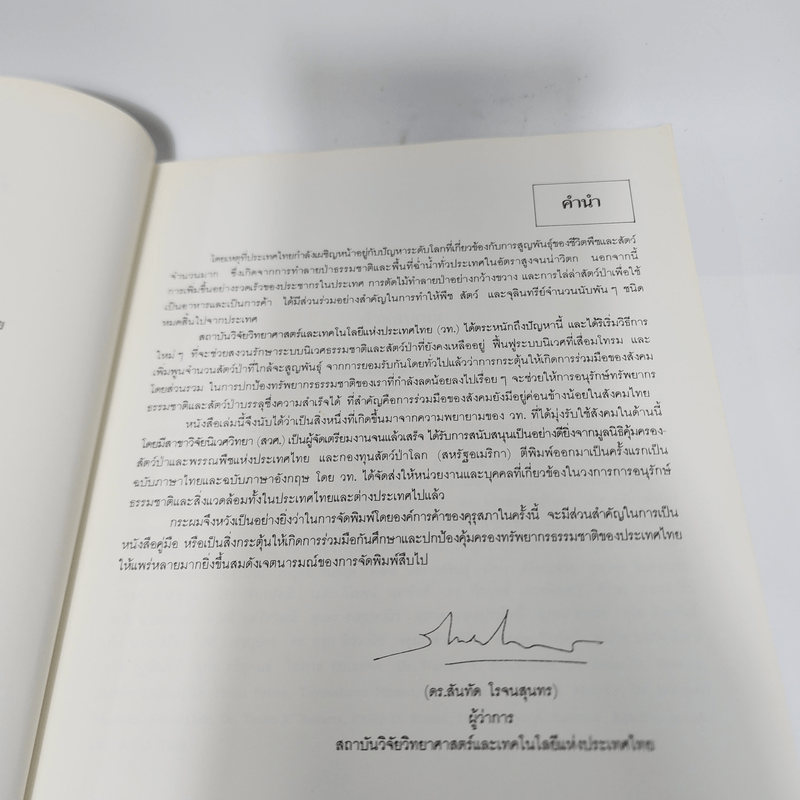 คำนำ
โดยเหตุที่ประเทศไทยกำลังเผชิญหน้าอยู่กับปัญหาระดับโลกที่เกี่ยวข้องกับการสูญพันธุ์ของชีวิตพืชและสัตว์
จำนวนมาก ซึ่งเกิดจากการทำลายป่าธรรมชาติและพื้นที่ฉ่ำน้ำทั่วประเทศในอัตราสูงจนน่าวิตก นอกจากนี้
การเพิ่มขึ้นอย่างรวดเร็วของประชากรในประเทศ การตัดไม้ทำลายป่าอย่างกว้างขวาง และการไล่ล่าสัตว์ป่าเพื่อใช้
เป็นอาหารและเป็นการค้า ได้มีส่วนร่วมอย่างสำคัญในการทำให้พืช สัตว์ และจุลินทรีย์จำนวนนับพัน ๆ ชนิด
หมดสิ้นไปจากประเทศ
สถาบันวิจัยวิทยาศาสตร์และเทคโนโลยีแห่งประเทศไทย (วท.) ได้ตระหนักถึงปัญหานี้ และได้ริเริ่มวิธีการ
ใหม่ ๆ ที่จะช่วยสงวนรักษาระบบนิเวศธรรมชาติและสัตว์ป่าที่ยังคงเหลืออยู่ ฟื้นฟูระบบนิเวศที่เสื่อมโทรม และ
เพิ่มพูนจำนวนสัตว์ป่าที่ใกล้จะสูญพันธุ์ จากการยอมรับกันโดยทั่วไปแล้วว่าการกระตุ้นให้เกิดการร่วมมือของสังคม
โดยส่วนรวม ในการปกป้องทรัพยากรธรรมชาติของเราที่กำลังลดน้อยลงไปเรื่อย ๆ จะช่วยให้การอนุรักษ์ทรัพยากร
ธรรมชาติและสัตว์ป่าบรรลุซึ่งความสำเร็จได้ ที่สำคัญคือการร่วมมือของสังคมยังมีอยู่ค่อนข้างน้อยในสังคมไทย
หนังสือเล่มนี้จึงนับได้ว่าเป็นสิ่งหนึ่งที่เกิดขึ้นมาจากความพยายามของ วท. ที่ได้มุ่งรับใช้สังคมในด้านนี้
โดยมีสาขาวิจัยนิเวศวิทยา (สวศ.) เป็นผู้จัดเตรียมงานจนแล้วเสร็จ ได้รับการสนับสนุนเป็นอย่างดียิ่งจากมูลนิธิคุ้มครอง-
สัตว์ป่าและพรรณพืชแห่งประเทศไทย และกองทุนสัตว์ป่าโลก (สหรัฐอเมริกา) ตีพิมพ์ออกมาเป็นครั้งแรกเป็น
ฉบับภาษาไทยและฉบับภาษาอังกฤษ โดย วท. ได้จัดส่งให้หน่วยงานและบุคคลที่เกี่ยวข้องในวงการการอนุรักษ์
ธรรมชาติและสิ่งแวดล้อมทั้งในประเทศไทยและต่างประเทศไปแล้ว
กระผมจึงหวังเป็นอย่างยิ่งว่าในการจัดพิมพ์โดยองค์การค้าของคุรุสภาในครั้งนี้ จะมีส่วนสำคัญในการเป็น
หนังสือคู่มือ หรือเป็นสิ่งกระตุ้นให้เกิดการร่วมมือกันศึกษาและปกป้องคุ้มครองทรัพยากรธรรมชาติของประเทศไทย
ให้แพร่หลายมากยิ่งขึ้นสมดังเจตนารมณ์ของการจัดพิมพ์สืบไป
(ดร.สันทัด โรจนสุนทร)
ผู้ว่าการ
สถาบันวิจัยวิทยาศาสตร์และเทคโนโลยีแห่งประเทศไทย